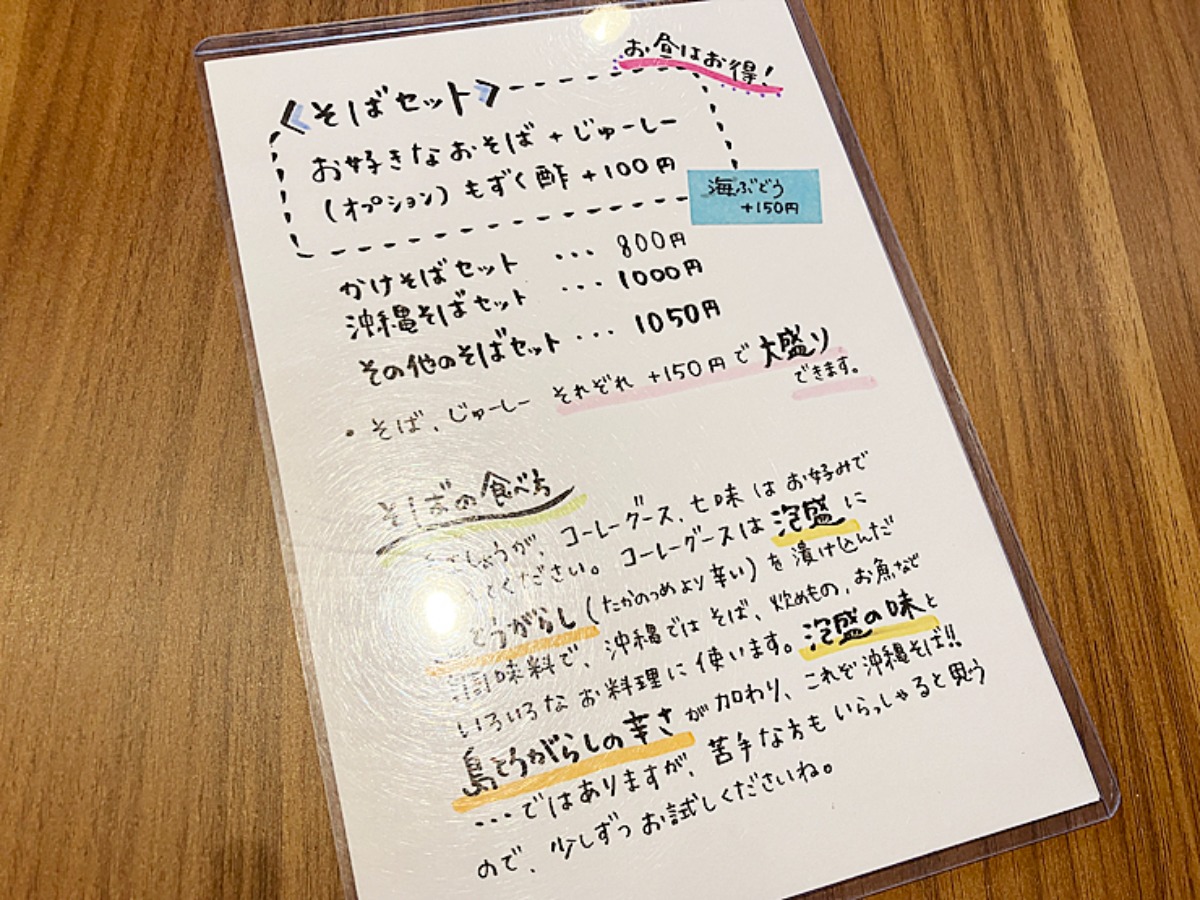 お昼はお得!
《そばセット》
お好きなおそば + じゅーしー
(オプション) もずく酢 +100円
海ぶどう
+150円
かけそばセット ... 800円
沖縄そばセット ... 1000円
その他のそばセット ... 1050円
• そば、じゅーしー それぞれ +150円で 大盛り
できます。
そばの食べ方
しょうが、コーレーグース、七味 はお好みで
ください。コーレーグースは 泡盛に
とうがらし (たかのつめより辛い) を漬け込んだ
調味料で、沖縄では そば、炒めもの、お魚など
いろいろなお料理に使います。泡盛の味と
島とうがらしの辛さが加わり、これぞ沖縄そば!!
...ではありますが、苦手な方もいらっしゃると思う
ので、少しずつお試しくださいね。